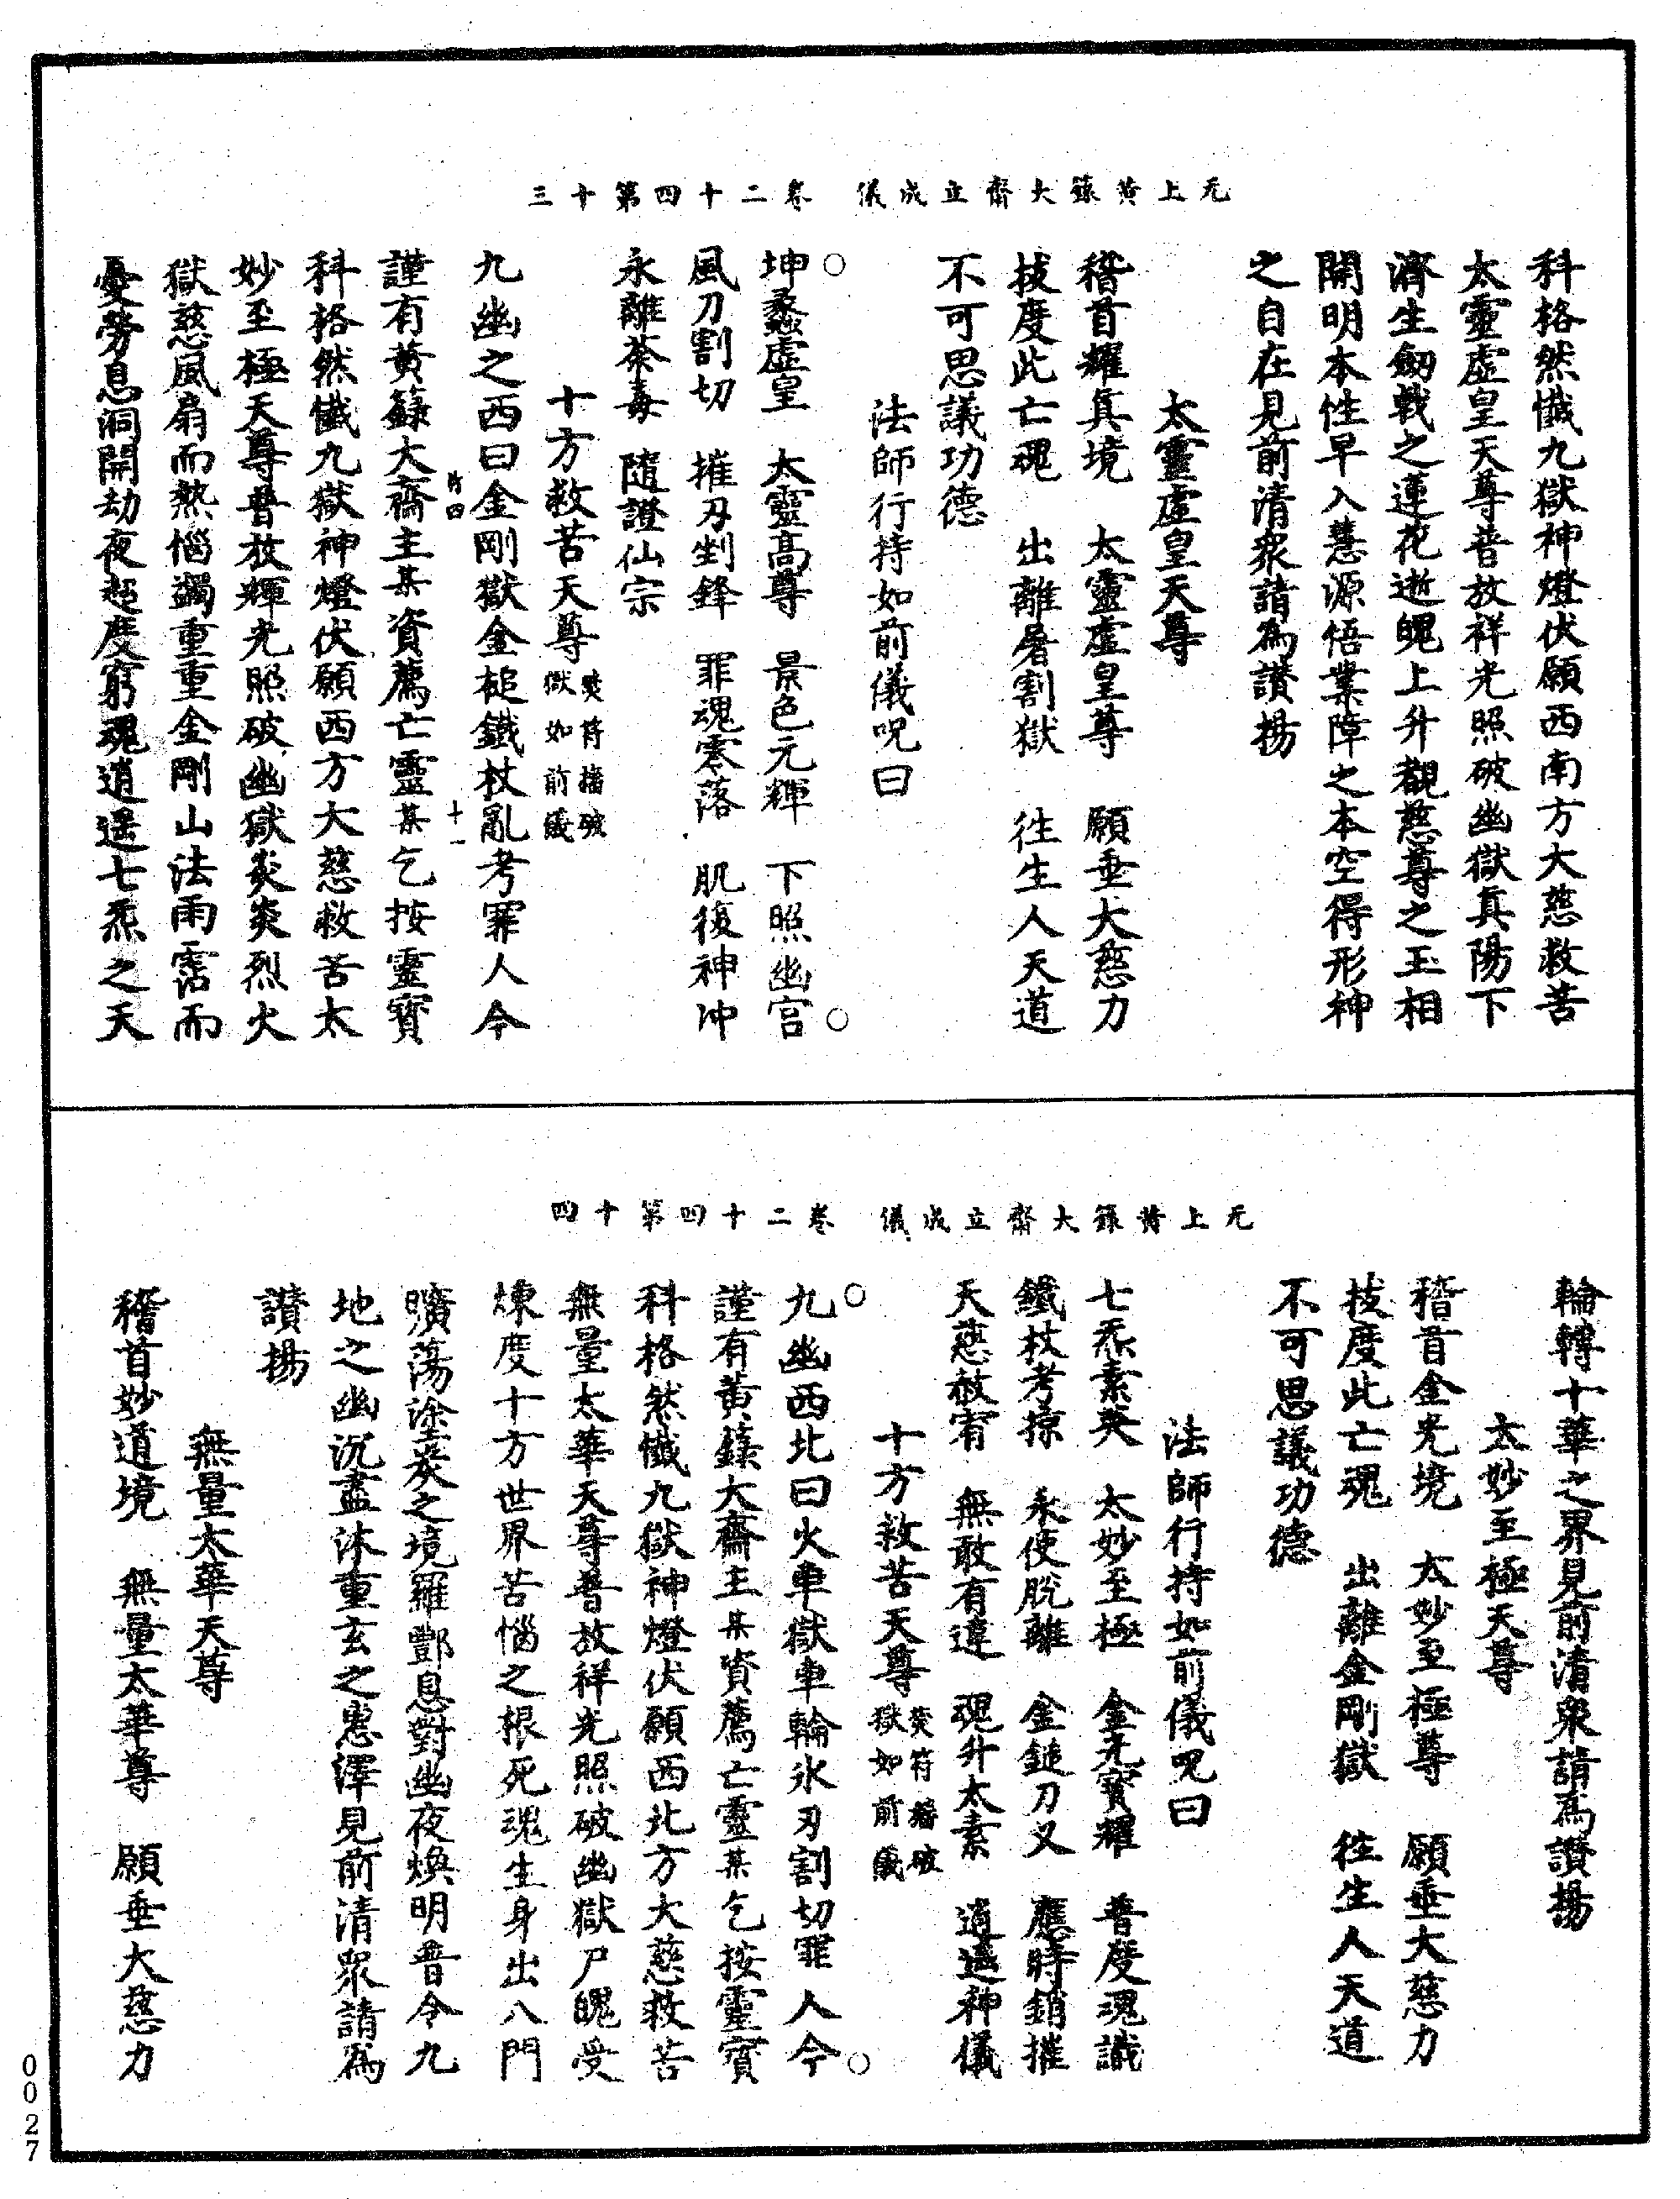 无上黃籙大齋立成儀　卷二十四第十三
科格然懺九獄神燈伏願西南方大慈救苦
太靈虛皇天尊普放祥光照破幽獄真陽下
濟生劒戟之蓮花逝魄上升覩慈尊之玉相
開明本性早入慧源悟業障之本空得形神
之自在見前清衆請為讚揚
太靈虛皇天尊
稽首耀真境　太靈虛皇尊　願垂大慈力
拔度此亡魂　出離屠割獄　徃生人天道
不可思議功德
法師行持如前儀呪曰
坤蠡虛皇　太靈高尊　景色元輝　下照幽宮
風刀割切　摧刃剉鋒　罪魂零落　肌復神冲
永離荼毒　隨證仙宗
十方救苦天尊焚符播破獄如前儀
九幽之西曰金剛獄金槌鐵杖亂考罪人今
十一
謹有黃籙大齋主某資薦亡靈某乞按靈寶
科格然懺九獄神燈伏願西方大慈救苦太
妙至極天尊普放輝光照破幽獄炎炎烈火
獄慈風扇而熱惱蠲重重金剛山法雨霑而
憂勞息洞開劫夜超度窮魂逍遥七炁之天
无上黃籙大齋立成儀　卷二十四第十四
輪轉十華之界見前清衆請為讚揚
太妙至極天尊
稽首金光境　太妙至極尊　願垂大慈力
拔度此亡魂　出離金剛獄　徃生人天道
不可思議功德
法師行持如前儀呪曰
七炁素英　太妙至極　金光寶耀　普度魂識
鐵杖考掠　永使脫離　金鎚刀叉　應時銷摧
天慈赦宥　無敢有違　魂升太素　逍遥神儀
十方救苦天尊焚符播破獄如前儀
九幽西北曰火車獄車輪氷刃割切罪人今
謹有黃籙大齋主某資薦亡靈某乞按靈寶
科格然懺九獄神燈伏願西北方大慈救苦
無量太華天尊普放祥光照破幽獄尸魄受
煉度十方世界苦惱之根死魂生身出八門
曠蕩塗炭之境羅酆息對幽夜煥明普令九
地之幽沉盡沐重玄之惠澤見前清衆請為
讚揚
無量太華天尊
稽首妙道境　無量太華尊　願垂大慈力
0027